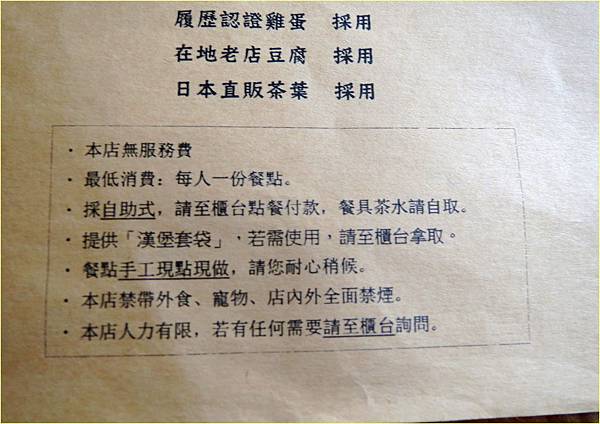 履歷認證雞蛋 採用
在地老店豆腐 採用
日本直販茶葉 採用
・本店無服務費
・最低消費：每人一份餐點。
・採自助式，請至櫃台點餐付款，餐具茶水請自取。
・提供「漢堡套袋」，若需使用，請至櫃台拿取。
・餐點手工現點現做，請您耐心稍候。
・本店禁帶外食、寵物、店內外全面禁煙。
・本店人力有限，若有任何需要請至櫃台詢問。